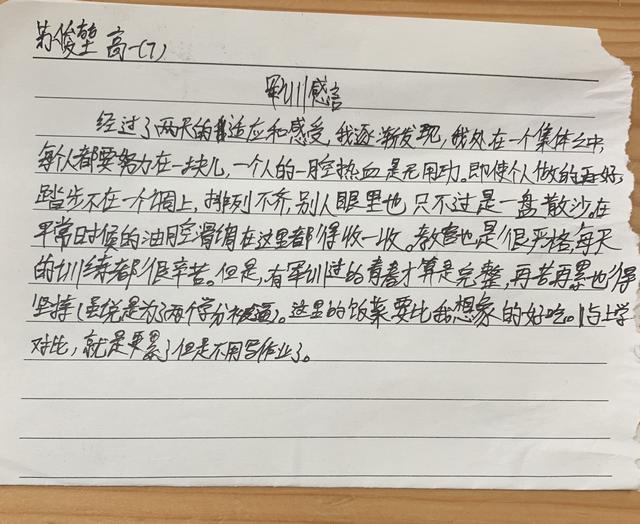 俊堃 高一(7)
军训感言
经过了两天的适应和感受,我逐渐发现,我处在一个集体之中,
每个人都要努力在一块儿,一个人的一腔热血是无用功。即使个人做的再好,
踏步不在一个调上,排列不齐,别人眼里也只不过是一盘散沙。在
平常时候的油腔滑调在这里都得收一收。教官也是很严格,每天
的训练都很辛苦。但是,有军训过的青春才算是完整,再苦再累也得
坚持(虽说是为了两个学分被逼)。这里的饭菜要比我想象的好吃。与上学
对比,就是要累了但是不用写作业了。